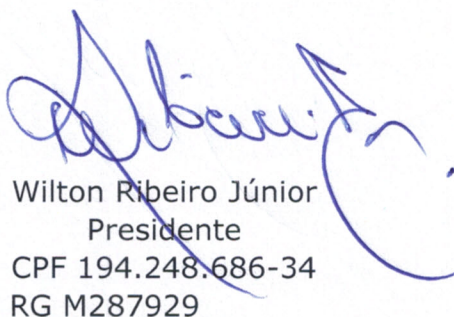 Wilton Ribeiro Júnior
Presidente
CPF 194.248.686-34
RG M287929